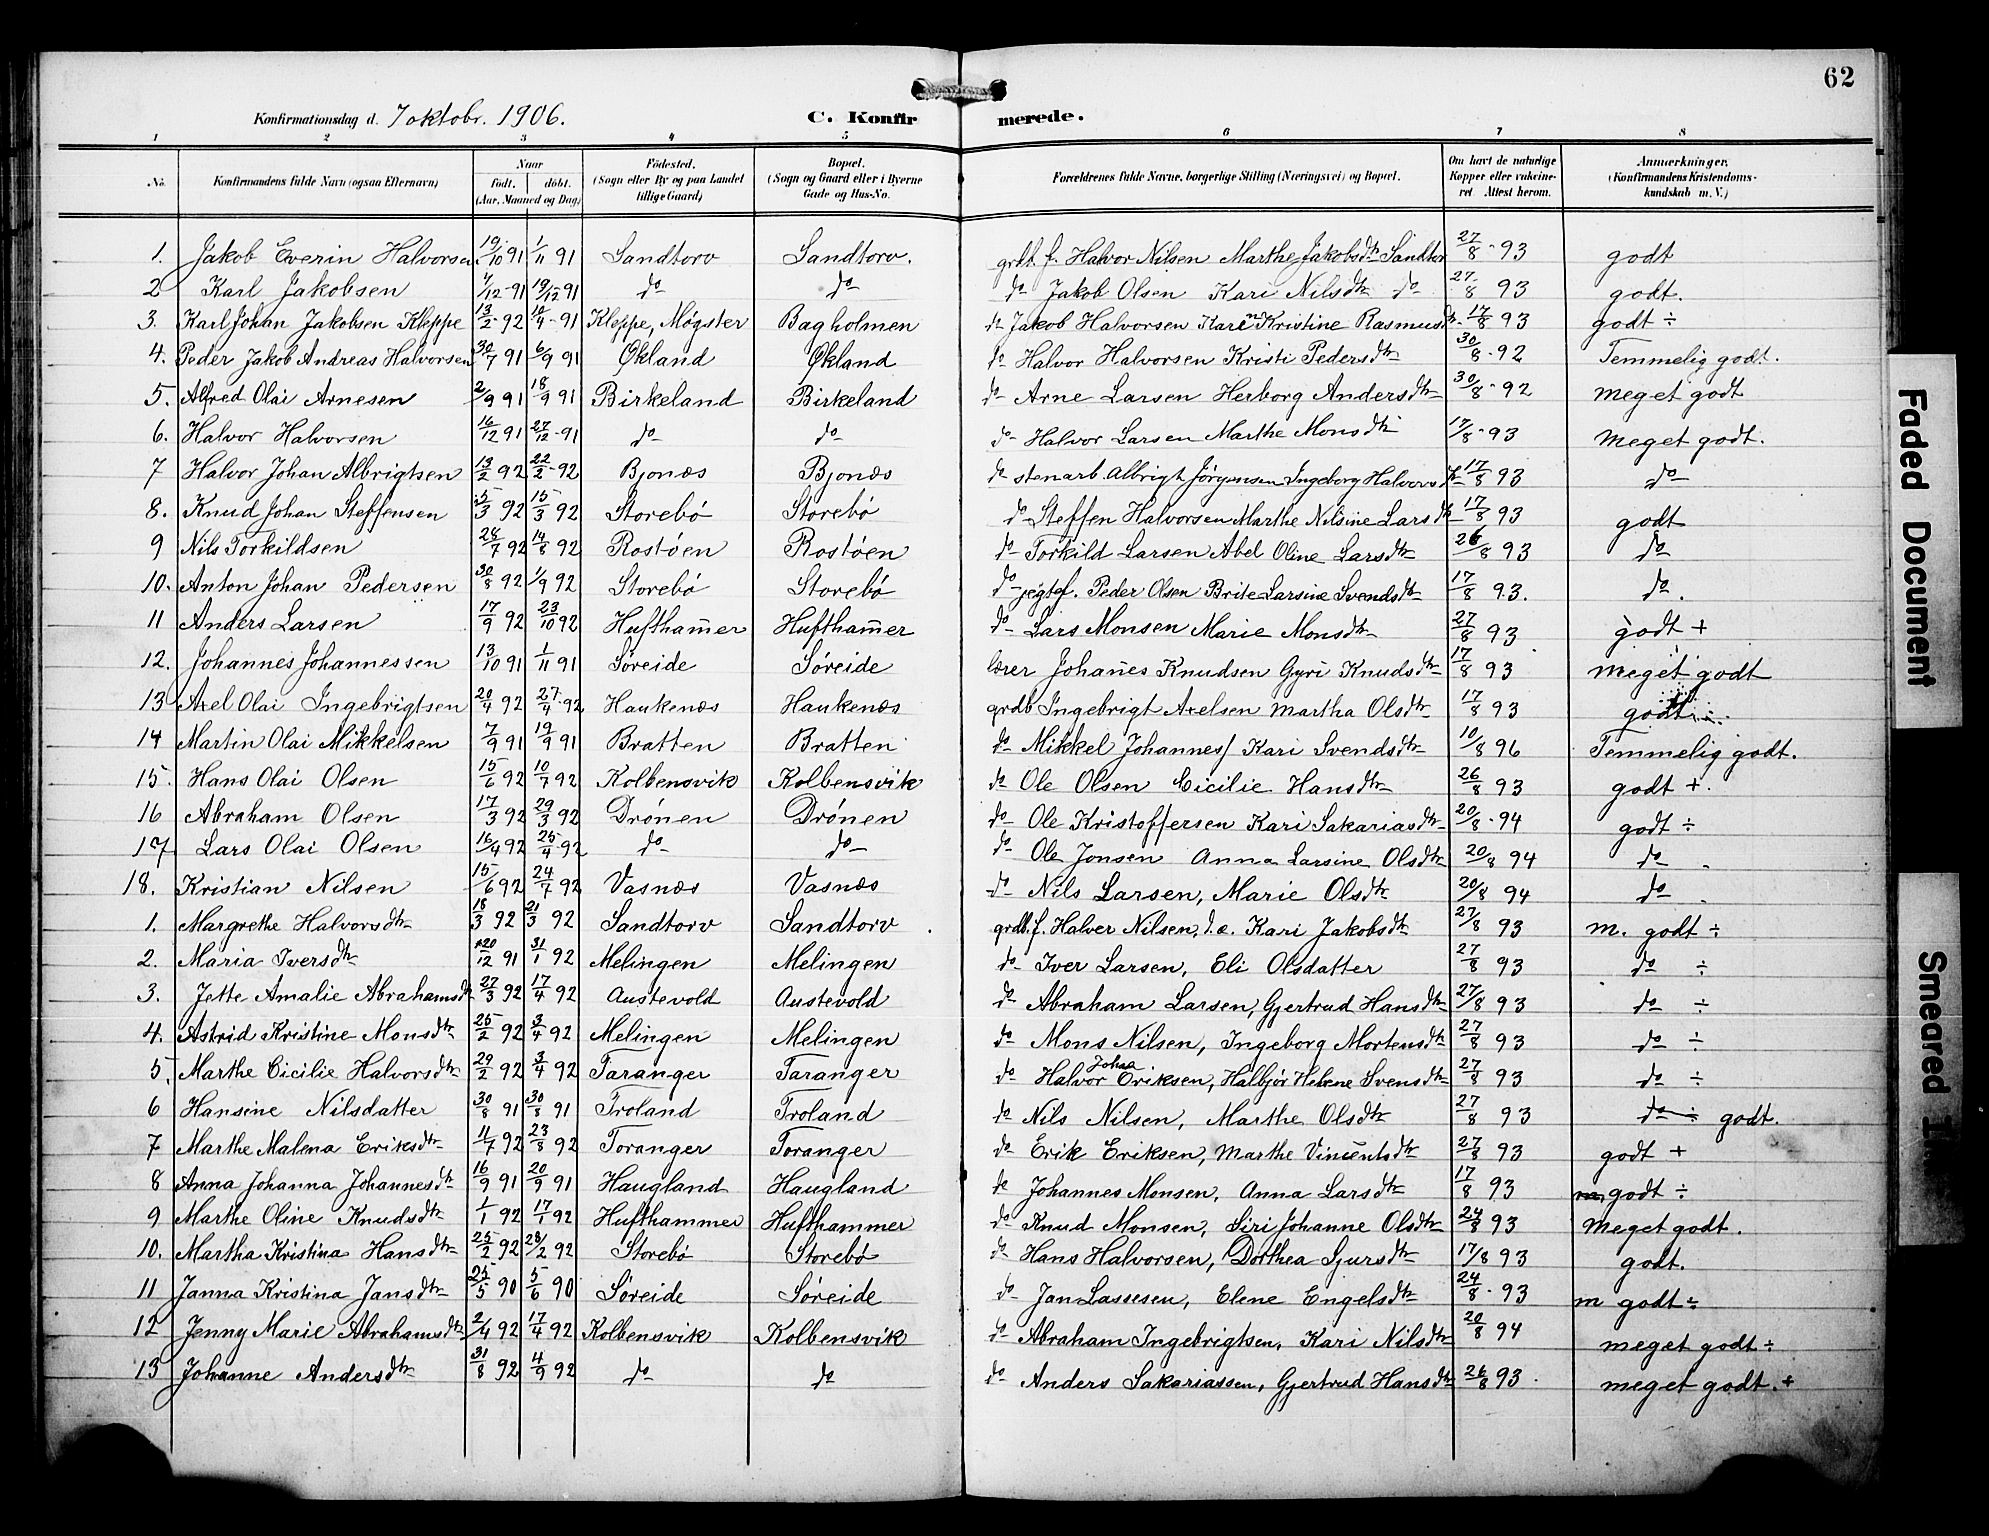 62
Konfirmationsdag d. 7 oktobr. 1906. C. Konfirmerede.
1 2 3 4 5 6 7 8
No. Konfirmandens fulde Navn (ogsaa Efternavn) Naar født. døbt. (Aar, Maaned og Dag) Fødested. (Sogn eller By og paa Landet tillige Gaard) Bopæl. (Sogn og Gaard eller i Byerne Gade og Hus-No. Forældrenes fulde Navne, borgerlige Stilling (Næringsvei) og Bopæl. Om havt de naturlige Kopper eller vakcineret Attest herom. Anmærkninger, (Konfirmandens Kristendomskundskab m. V.)
1. Jakob Everin Halvorsen 19/10 91 1/11 91 Sandtorv Sandtorv. grdb. f. Halvor Nilsen Marthe Jakobsdtr Sandtor 27/8 - 93 godt
2 Karl Jakobsen 1/12 - 91 19/12 91 do do do Jakob Olsen Kari Nilsdtr do 27/8 93 godt.
3. Karl Johan Jakobsen Kleppe 13/2 - 92 18/4 - 91 Kleppe, Møgster Bagholmen do Jakob Halvorsen Karen Kristine Rasmusdtr 17/8 93 godt ÷
4. Peder Jakob Andreas Halvorsen 30/7 91 6/9 91 Økland Økland do Halvor Halvorsen Kristi Pedersdtr 30/8 - 92 Temmelig godt.
5. Alfred Olai Arnesen 2/9 91 18/9 91 Birkeland Birkeland do Arne Larsen Herborg Andersdtr 30/8 - 92 meget godt
6. Halvor Halvorsen 16/12 91 27/12 - 91 do do do Halvor Larsen Marthe Monsdtr 17/8 - 93 meget godt.
7 Halvor Johan Albrigtsen 13/2 92 22/2 - 92 Bjonæs Bjonæs do stenarb. Albrigt Jörgensen Ingeborg Halvorsdtr 17/8 93 do
8. Knud Johan Steffensen 5/3 92 15/3 92 Storebö Storebö do Steffen Halvorsen Marthe Nilsine Larsdtr 17/8 93 godt
9 Nils Torkildsen 28/7 92 14/8 92 Rostøen Rostøen do Torkild Larsen Abel Oline Larsdtr 26/8 93 do
10. Anton Johan Pedersen 30/8 92 1/9 92 Storebö Storebö do jegtef. Peder Olsen Brite Larsine Svendsdtr 17/8 93. do.
11 Anders Larsen 17/9 92 23/10 92 Hufthamer Hufthamer do Lars Monsen Marie Monsdtr 27/8 93 godt +
12. Johannes Johannessen 13/10 91 1/11 91 Søreide Søreide lærer Johanes Knudsen Gyri Knudsdtr 17/8 93 meget godt
13 Axel Olai Ingebrigtsen 20/4 92 27/4 92 Haukenæs Haukenæs grdb Ingebrigt Axelsen Martha Olsdtr 17/8 93 godt
14 Martin Olai Mikkelsen 7/9 91 19/9 91 Bratten Bratten do Mikkel Johannes/ Kari Svendsdtr 10/8 96 Temmelig godt.
15. Hans Olai Olsen 15/6 92 10/7 92 Kolbensvik Kolbensvik do Ole Olsen Cicilie Hansdtr 26/8 93 godt +.
16 Abraham Olsen 17/3 92 29/3 92 Drönen Drönen do Ole Kristoffersen Kari Sakariasdtr 20/8 - 94 godt ÷
17 Lars Olai Olsen 16/4 92 25/4 92 do do do Ole Jonsen Anna Larsine Olsdtr 20/8 94 do
18. Kristian Nilsen 15/6 92 24/7 92 Vasnæs Vasnæs do Nils Larsen, Marie Olsdtr 20/8 94 do
1. Margrethe Halvorsdtr 18/3 92 21/3 92 Sandtorv Sandtorv grdb. f. Halver Nilsen, d. æ. Kari Jakobsdtr 27/8 93 m. godt ÷
2. Maria Iversdtr 20/12 91 31/1 92 Melingen Melingen do Iver Larsen, Eli Olsdatter 27/8 93 do ÷
3. Jette Amalie Abrahamsdtr 27/3 92 17/4 92 Austevold Austevold do Abraham Larsen, Gjertrud Hansdtr 27/8 93 do ÷
4. Astrid Kristine Monsdtr 25/2 92 3/4 92 Melingen Melingen do Mons Nilsen, Ingeborg Mortensdtr 27/8 93 do ÷
5. Marthe Cicilie Halvorsdtr 29/2 92 3/4 92 Taranger Taranger do Halvor Johan Eriksen, Halbjör Helene Svensdtr 27/8 93 do ÷
6 Hansine Nilsdatter 30/8 91 30/8 91 Troland Troland do Nils Nilsen, Marthe Olsdtr 27/8 93 do ÷ godt.
7 Marthe Malena Eriksdtr 11/7 92 23/8 92 Toranger Toranger do Erik Eriksen, Marthe Vincentsdtr 27/8 93 godt +
8 Anna Johanna Johannesdtr 16/9 91 20/9 91 Haugland Haugland do Johannes Monsen, Anna Larsdtr 17/8 93 m godt ÷
9 Marthe Oline Knudsdtr 1/1 92 17/1 92 Hufthammer Hufthammer do Knud Monsen, Siri Johanne Olsdtr 24/8 93 Meget godt.
10. Martha Kristina Hansdtr 25/2 92 28/2 92 Storebö Storebö do Hans Halvorsen, Dorthea Sjursdtr 17/8 93 godt.
11 Janna Kristina Jansdtr 25/5 90 5/6 90 Søreide Søreide do Jan Lassesen, Elene Engelsdtr 24/8 - 93 m godt ÷
12 Jenny Marie Abrahamsdtr 2/4 92 17/4 92 Kolbensvik Kolbensvik do Abraham Ingebrigtsen, Kari Nilsdtr 20/8 94 meget godt ÷
13 Johanne Andersdtr 31/8 92 4/9 92 do do do Anders Sakariassen, Gjertrud Hansdtr 26/8 93. meget godt. +
Faded Document
Smeared